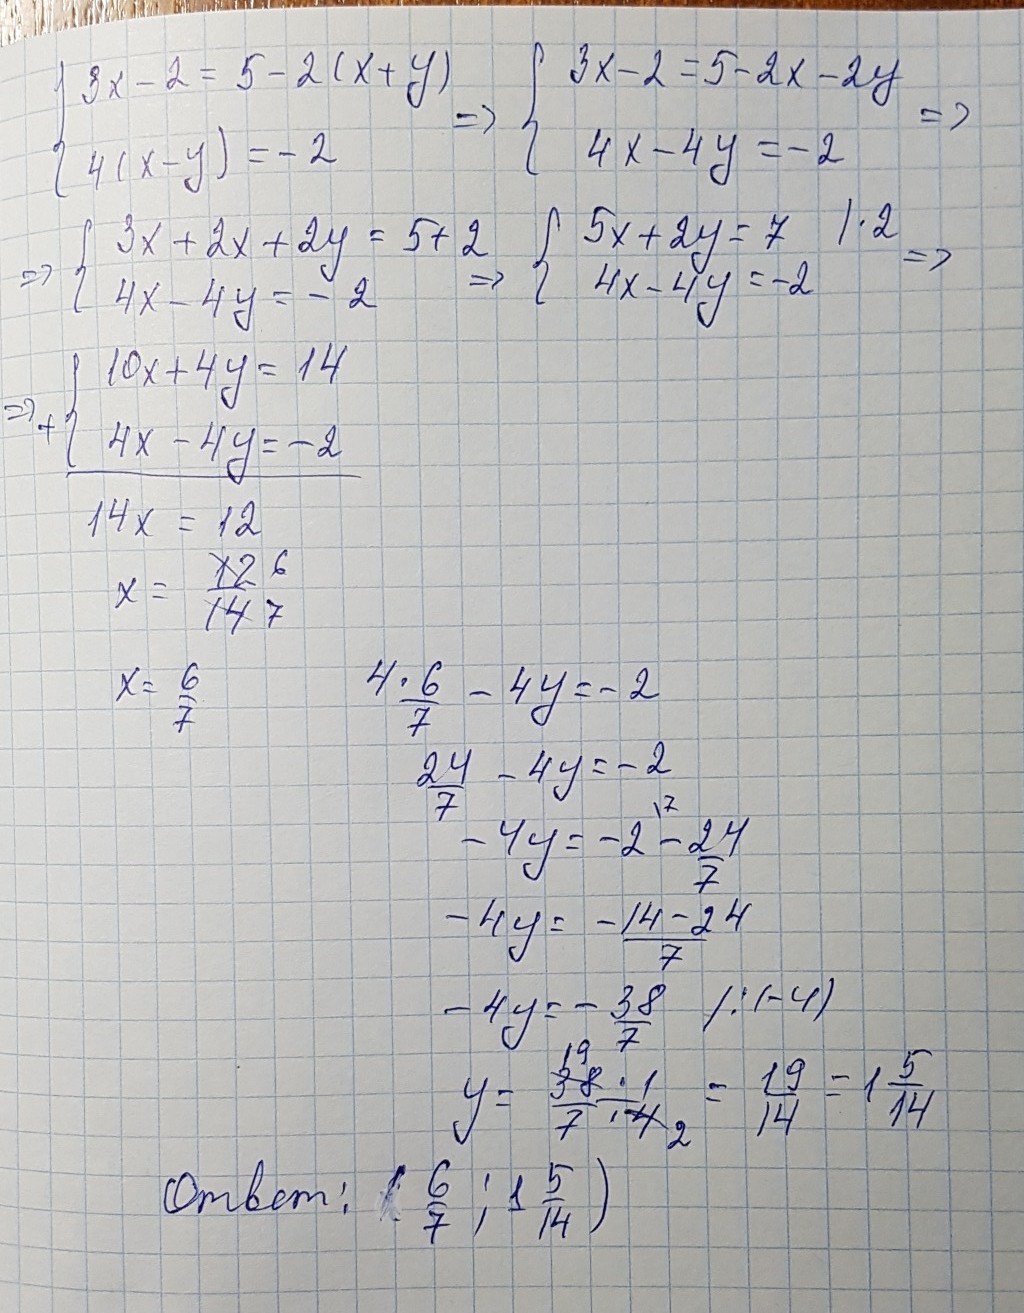 { 3x - 2 = 5 - 2(x + y) => { 3x - 2 = 5 - 2x - 2y =>
4(x - y) = -2 4x - 4y = -2
=> { 3x + 2x + 2y = 5 + 2 => { 5x + 2y = 7 | · 2 =>
4x - 4y = -2 4x - 4y = -2
=> + { 10x + 4y = 14
4x - 4y = -2
14x = 12
x = 12/14 6/7
x = 6/7 4 · 6/7 - 4y = -2
24/7 - 4y = -2
-4y = -2 \7 - 24/7
-4y = (-14 - 24)/7
-4y = -38/7 /: (-4)
y = 38/7 · 1/4 19 2 = 19/14 = 1 5/14
Ответ: (6/7; 1 5/14)